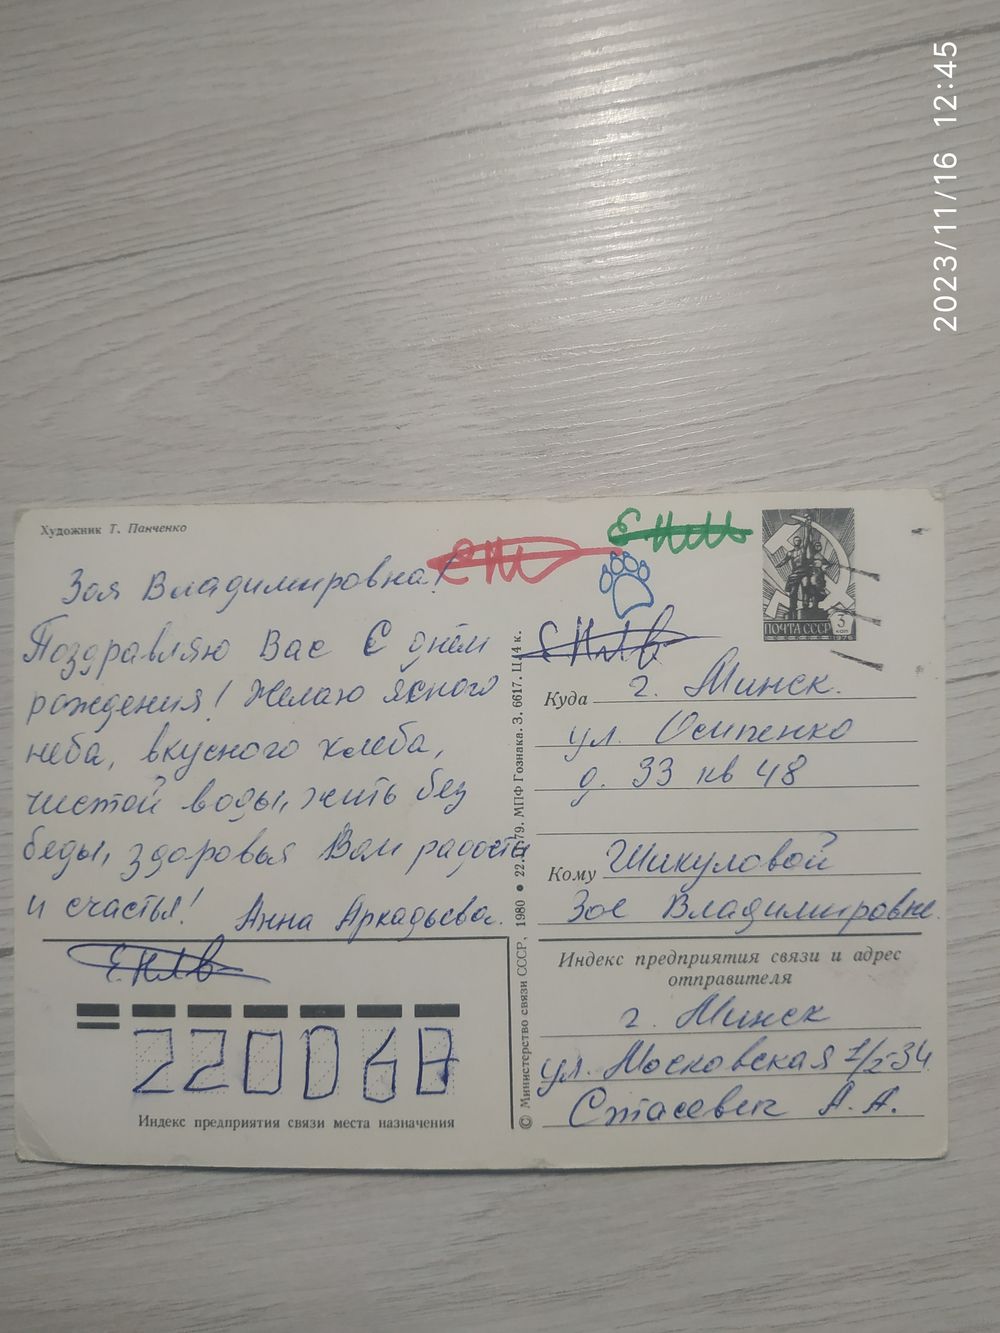 2023/11/16 12:45
Художник Т. Панченко
Зоя Владимировна!
Поздравляю Вас С днём
рождения! Желаю ясного
неба, вкусного хлеба,
чистой воды, жить без
беды, здоровья Вам радости
и счастья! Анна Аркадьевна.
Индекс предприятия связи места назначения
© Министерство связи СССР, 1980 • 22.11.79. МПФ Гознака. З. 6617. Ц. 4 к.
ПОЧТА СССР 3 коп 1976
Куда г. Минск.
ул. Осипенко
д. 33 кв 48
Кому Шикуловой
Зое Владимировне.
Индекс предприятия связи и адрес
отправителя
г. Минск
ул. Московская 1/2-34
А. А.